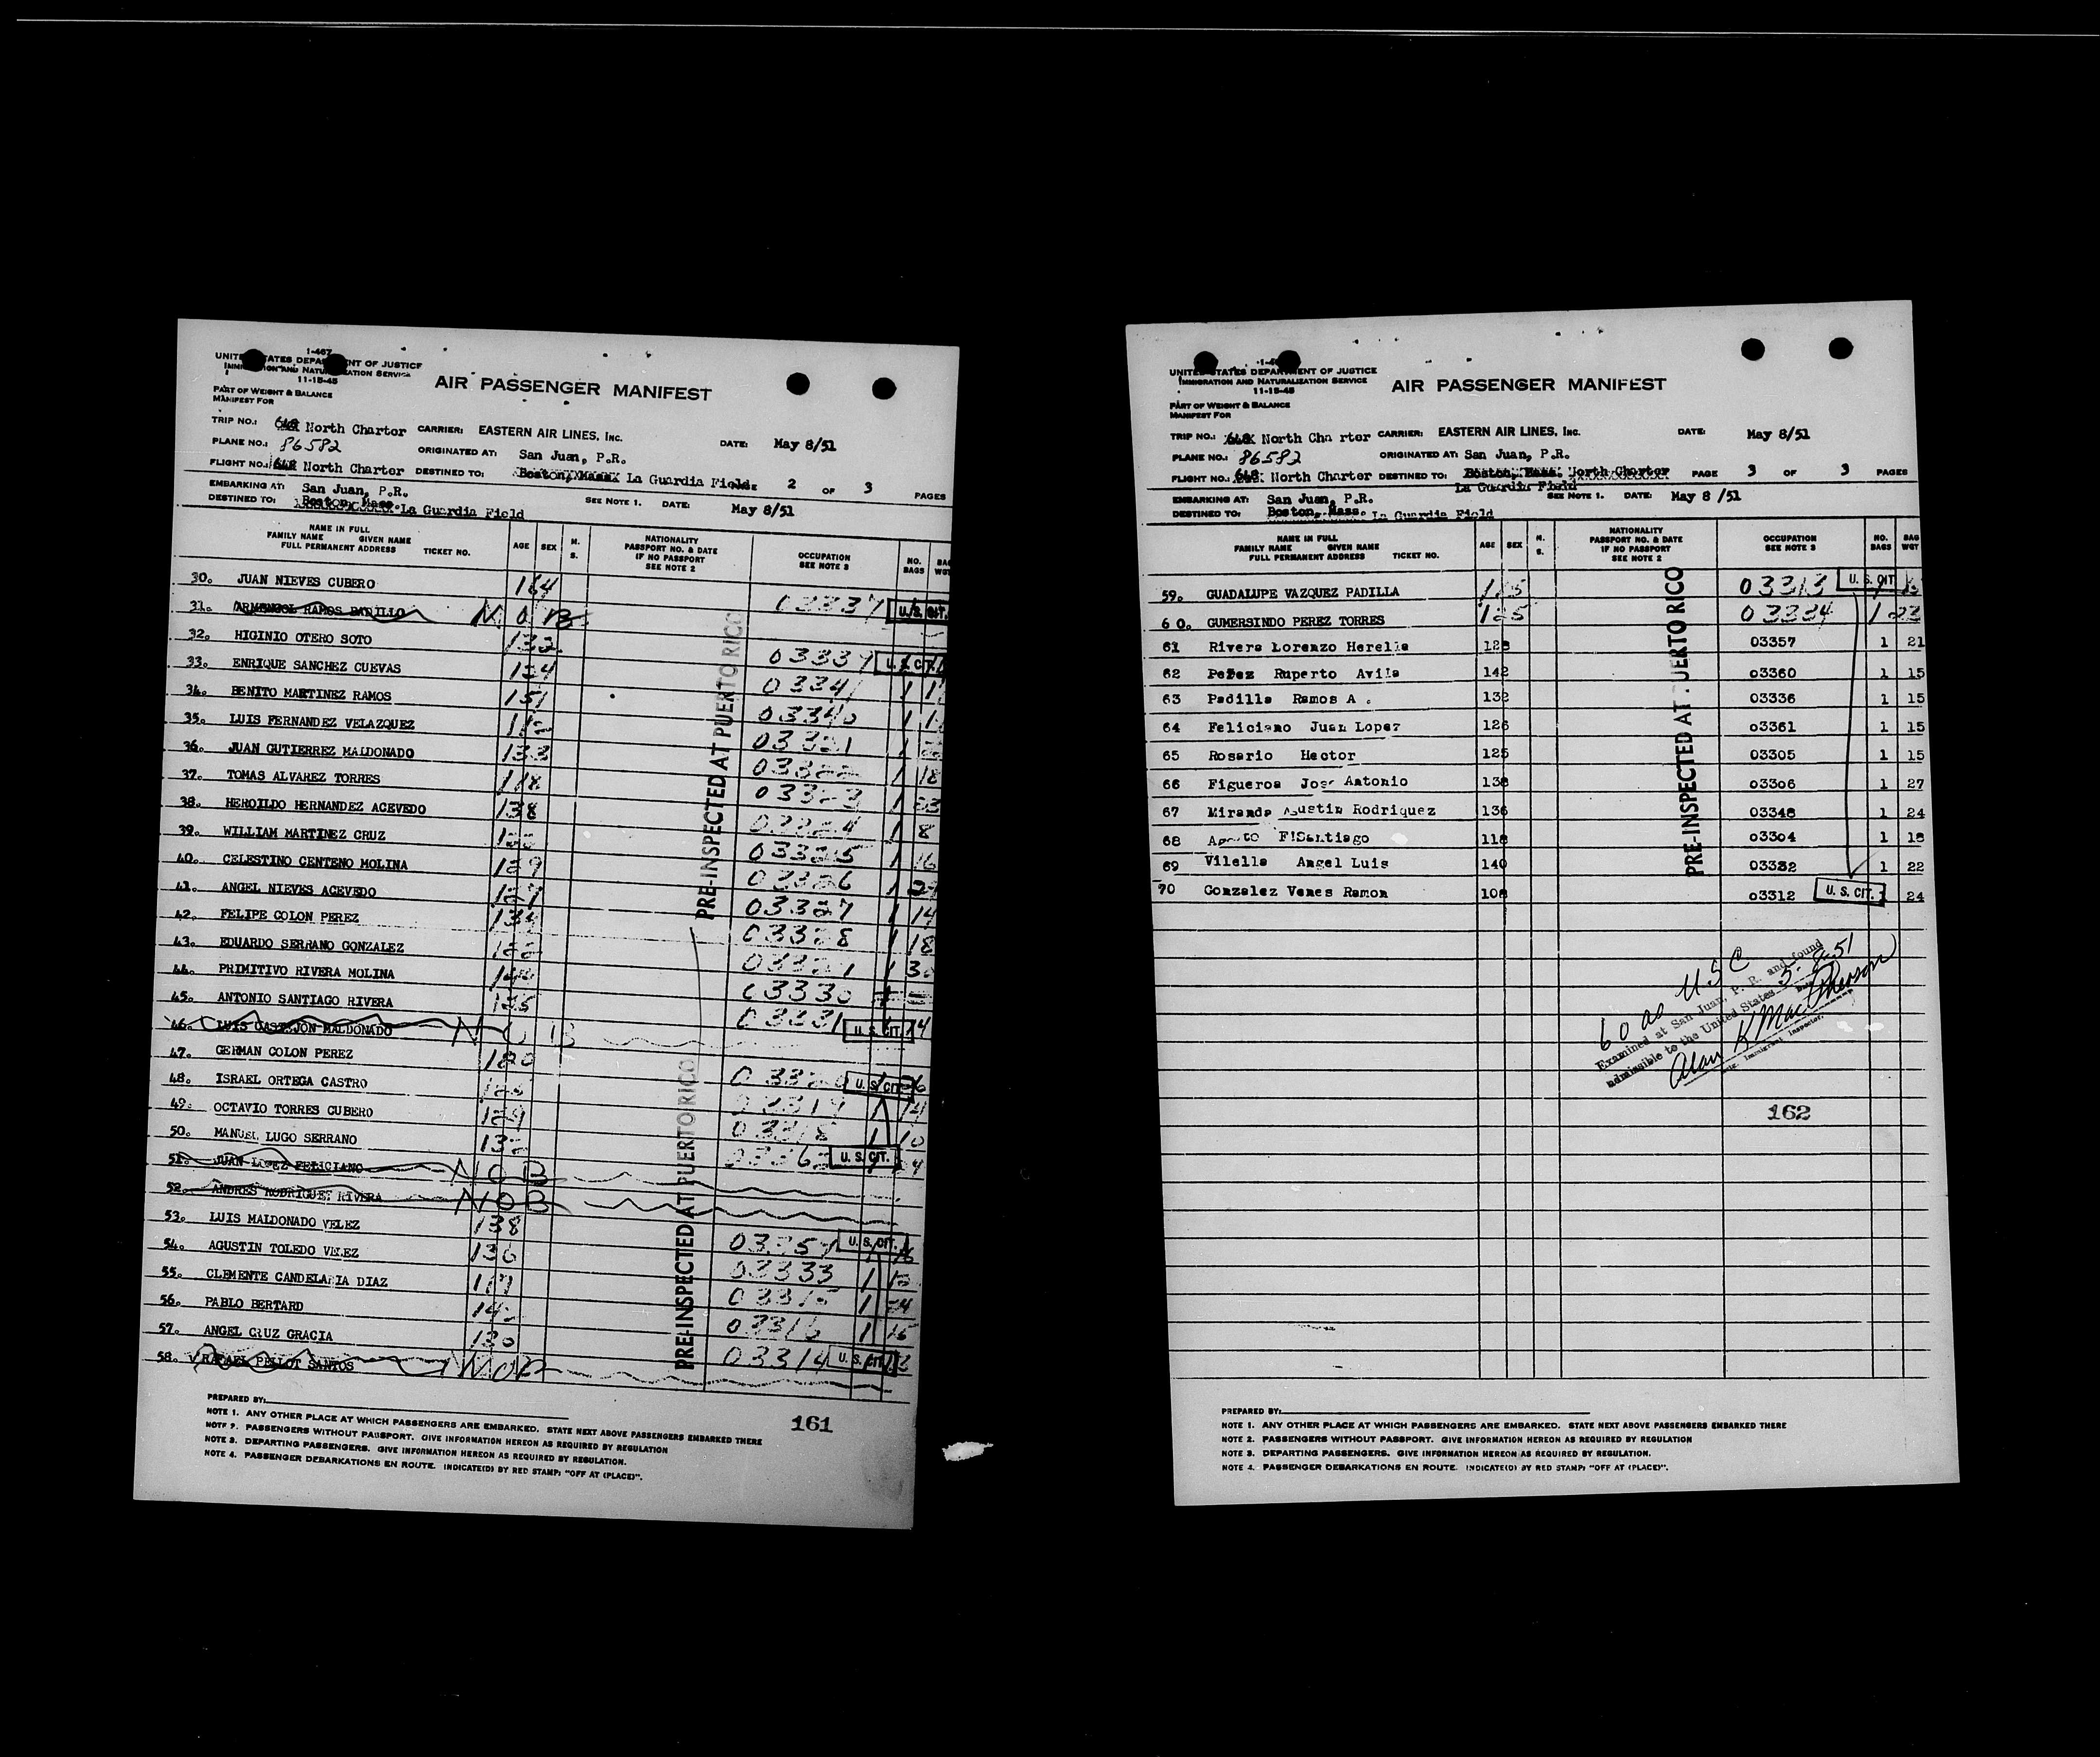 1-467
UNITED STATES DEPARTMENT OF JUSTICE
IMMIGRATION AND NATURALIZATION SERVICE
11-15-45
PART OF WEIGHT & BALANCE
MANIFEST FOR
AIR PASSENGER MANIFEST
TRIP NO.: North Chartor CARRIER: EASTERN AIR LINES, INC. DATE: May 8/51
PLANE NO.: 86582 ORIGINATED AT: San Juan, P.R.
FLIGHT NO.: North Charter DESTINED TO: Boston, Mass. La Guardia Field 2 OF 3 PAGES
EMBARKING AT: San Juan, P.R.
DESTINED TO: Boston, Mass. La Guardia Field SEE NOTE 1. DATE: May 8/51
NAME IN FULL
FAMILY NAME GIVEN NAME
FULL PERMANENT ADDRESS TICKET NO. AGE SEX M. S. NATIONALITY PASSPORT NO. & DATE IF NO PASSPORT SEE NOTE 2 OCCUPATION SEE NOTE 3 NO. BAGS BAG WGT
30. JUAN NIEVES CUBERO 164
31. ARMENGOL RAMOS PADILLO N O B U.S. CIT.
32. HIGINIO OTERO SOTO 132
33. ENRIQUE SANCHEZ CUEVAS 124 U.S. CIT.
34. BENITO MARTINEZ RAMOS 151 1
35. LUIS FERNANDEZ VELAZQUEZ 03340 1
36. JUAN GUTIERREZ MALDONADO 133 03321 1
37. TOMAS ALVAREZ TORRES 118 03322 1 18
38. HEROILDO HERNANDEZ ACEVEDO 138 03323 1
39. WILLIAM MARTINEZ CRUZ 03324 1 8
40. CELESTINO CENTENO MOLINA 129 03325 1 16
41. ANGEL NIEVES ACEVEDO 127 03326 1
42. FELIPE COLON PEREZ 134 03327 1 14
43. EDUARDO SERRANO GONZALEZ 03328 1 18
44. PRIMITIVO RIVERA MOLINA 1
45. ANTONIO SANTIAGO RIVERA 03330
46. LUIS CASTEJON MALDONADO N O B 03331 U.S. CIT. 14
47. GERMAN COLON PEREZ 120
48. ISRAEL ORTEGA CASTRO U.S. CIT.
49. OCTAVIO TORRES CUBERO 129 1 14
50. MANUEL LUGO SERRANO 03318 1 10
51. JUAN LOPEZ FELICIANO N O B U.S. CIT.
52. ANDRES RODRIGUEZ RIVERA N O B
53. LUIS MALDONADO VELEZ 138
54. AGUSTIN TOLEDO VELEZ 136 U.S. CIT.
55. CLEMENTE CANDELARIA DIAZ 117 03333 1
56. PABLO BERTARD 1
57. ANGEL CRUZ GRACIA 130 03316 1 15
58. RAFAEL PELLOT SANTOS N O B 03314 U.S. CIT.
PRE-INSPECTED AT PUERTO RICO
PRE-INSPECTED AT PUERTO RICO
PREPARED BY:
161
NOTE 1. ANY OTHER PLACE AT WHICH PASSENGERS ARE EMBARKED. STATE NEXT ABOVE PASSENGERS EMBARKED THERE
NOTE 2. PASSENGERS WITHOUT PASSPORT. GIVE INFORMATION HEREON AS REQUIRED BY REGULATION
NOTE 3. DEPARTING PASSENGERS. GIVE INFORMATION HEREON AS REQUIRED BY REGULATION.
NOTE 4. PASSENGER DEBARKATIONS EN ROUTE. INDICATE(D) BY RED STAMP: "OFF AT (PLACE)".
UNITED STATES DEPARTMENT OF JUSTICE
IMMIGRATION AND NATURALIZATION SERVICE
11-15-45
PART OF WEIGHT & BALANCE
MANIFEST FOR
AIR PASSENGER MANIFEST
TRIP NO.: North Cha rter CARRIER: EASTERN AIR LINES, INC. DATE: May 8/51
PLANE NO.: 86582 ORIGINATED AT: San Juan, P.R.
FLIGHT NO.: North Charter DESTINED TO: Boston, Mass. North Charter PAGE 3 OF 3 PAGES
La Guardia Field
EMBARKING AT: San Juan, P.R. SEE NOTE 1. DATE: May 8 /51
DESTINED TO: Boston, Mass. La Guardia Field
NAME IN FULL
FAMILY NAME GIVEN NAME
FULL PERMANENT ADDRESS TICKET NO. AGE SEX M. S. NATIONALITY PASSPORT NO. & DATE IF NO PASSPORT SEE NOTE 2 OCCUPATION SEE NOTE 3 NO. BAGS BAG WGT
59. GUADALUPE VAZQUEZ PADILLA 03313 U. S. CIT.
6 0. GUMERSINDO PEREZ TORRES 125 03334 1 23
61 Rivera Lorenzo Herelia 128 03357 1 21
62 Perez Ruperto Avila 142 03360 1 15
63 Padilla Ramos A . 132 03336 1 15
64 Feliciano Juan Lopez 126 03361 1 15
65 Rosario Hector 125 03305 1 15
66 Figueroa Jose Antonio 138 03306 1 27
67 Miranda Agustin Rodriquez 136 03348 1 24
68 Agosto F!Santiago 118 03304 1 18
69 Vilella Angel Luis 140 03332 1 22
70 Gonzalez Venes Ramon 108 03312 U. S. CIT. 24
PRE-INSPECTED AT PUERTO RICO
60 as U S C
Examined at San Juan, P. R. and found
admissible to the United States 5-8-51
Date
Alan K MacPherson
Immigrant Inspector.
162
PREPARED BY:
NOTE 1. ANY OTHER PLACE AT WHICH PASSENGERS ARE EMBARKED. STATE NEXT ABOVE PASSENGERS EMBARKED THERE
NOTE 2. PASSENGERS WITHOUT PASSPORT. GIVE INFORMATION HEREON AS REQUIRED BY REGULATION
NOTE 3. DEPARTING PASSENGERS. GIVE INFORMATION HEREON AS REQUIRED BY REGULATION.
NOTE 4. PASSENGER DEBARKATIONS EN ROUTE. INDICATE(D) BY RED STAMP: "OFF AT (PLACE)".